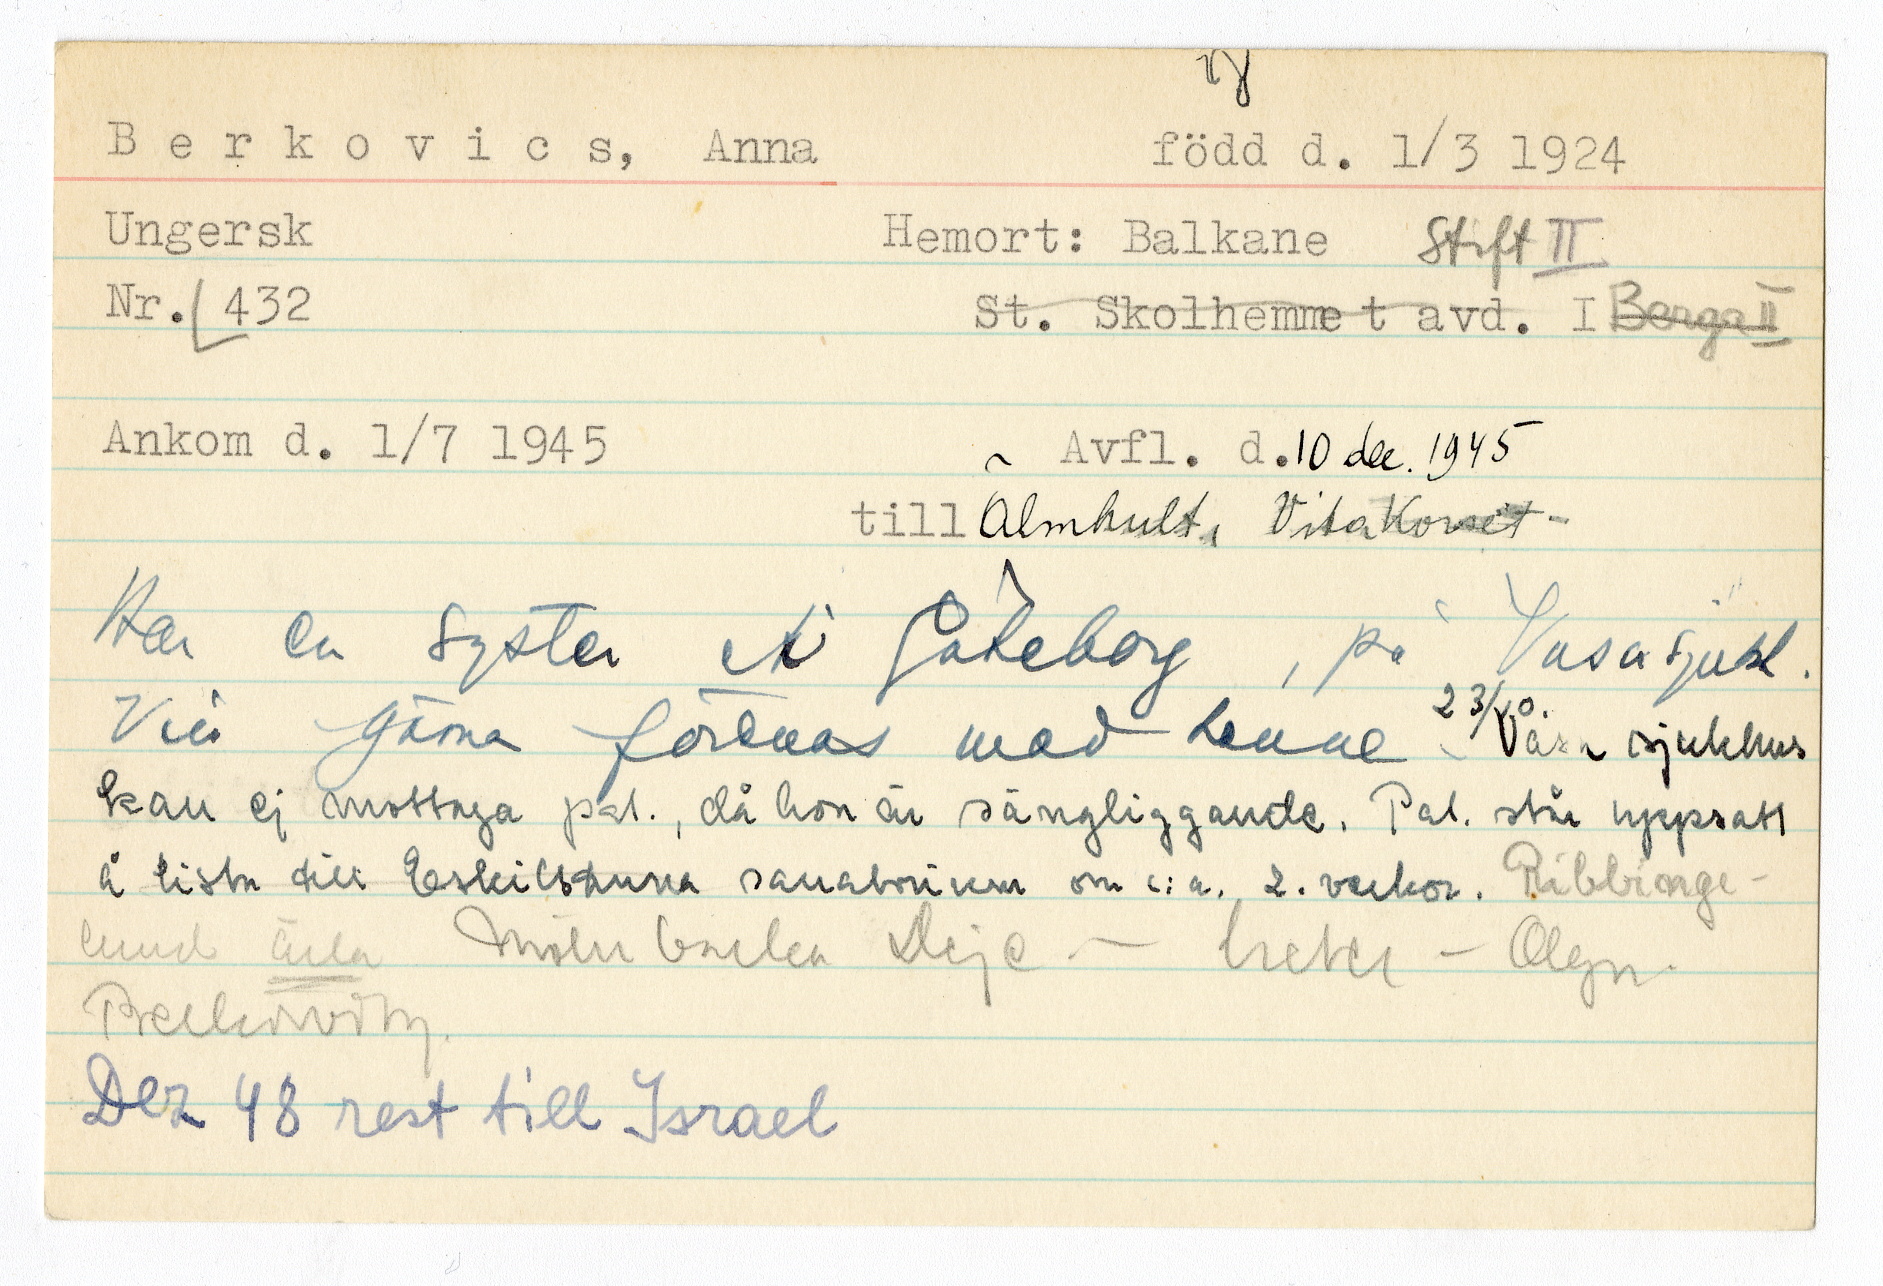 Berkovics, Anna född d. 1/3 1924
Ungersk Hemort: Balkane Stift II
Nr. 432 St. Skolhemmet avd. I Berga II
Ankom d. 1/7 1945 Avfl. d. 10 dec. 1945
till Älmhult, Vita Korset-
Har en syster i Göteborg, på Vasa sjukh.
Vill gärna förenas med henne 23/10. Vasa sjukhus
kan ej mottaga pat., då hon är sängliggande. Pat. står uppsatt
å lista till Eskilstuna sanatorium om c:a. 2. veckor. Ribbinge-
lund Ärla Mölnbacka Deje — – Olga
Berkovits.
Dez 48 rest till Israel